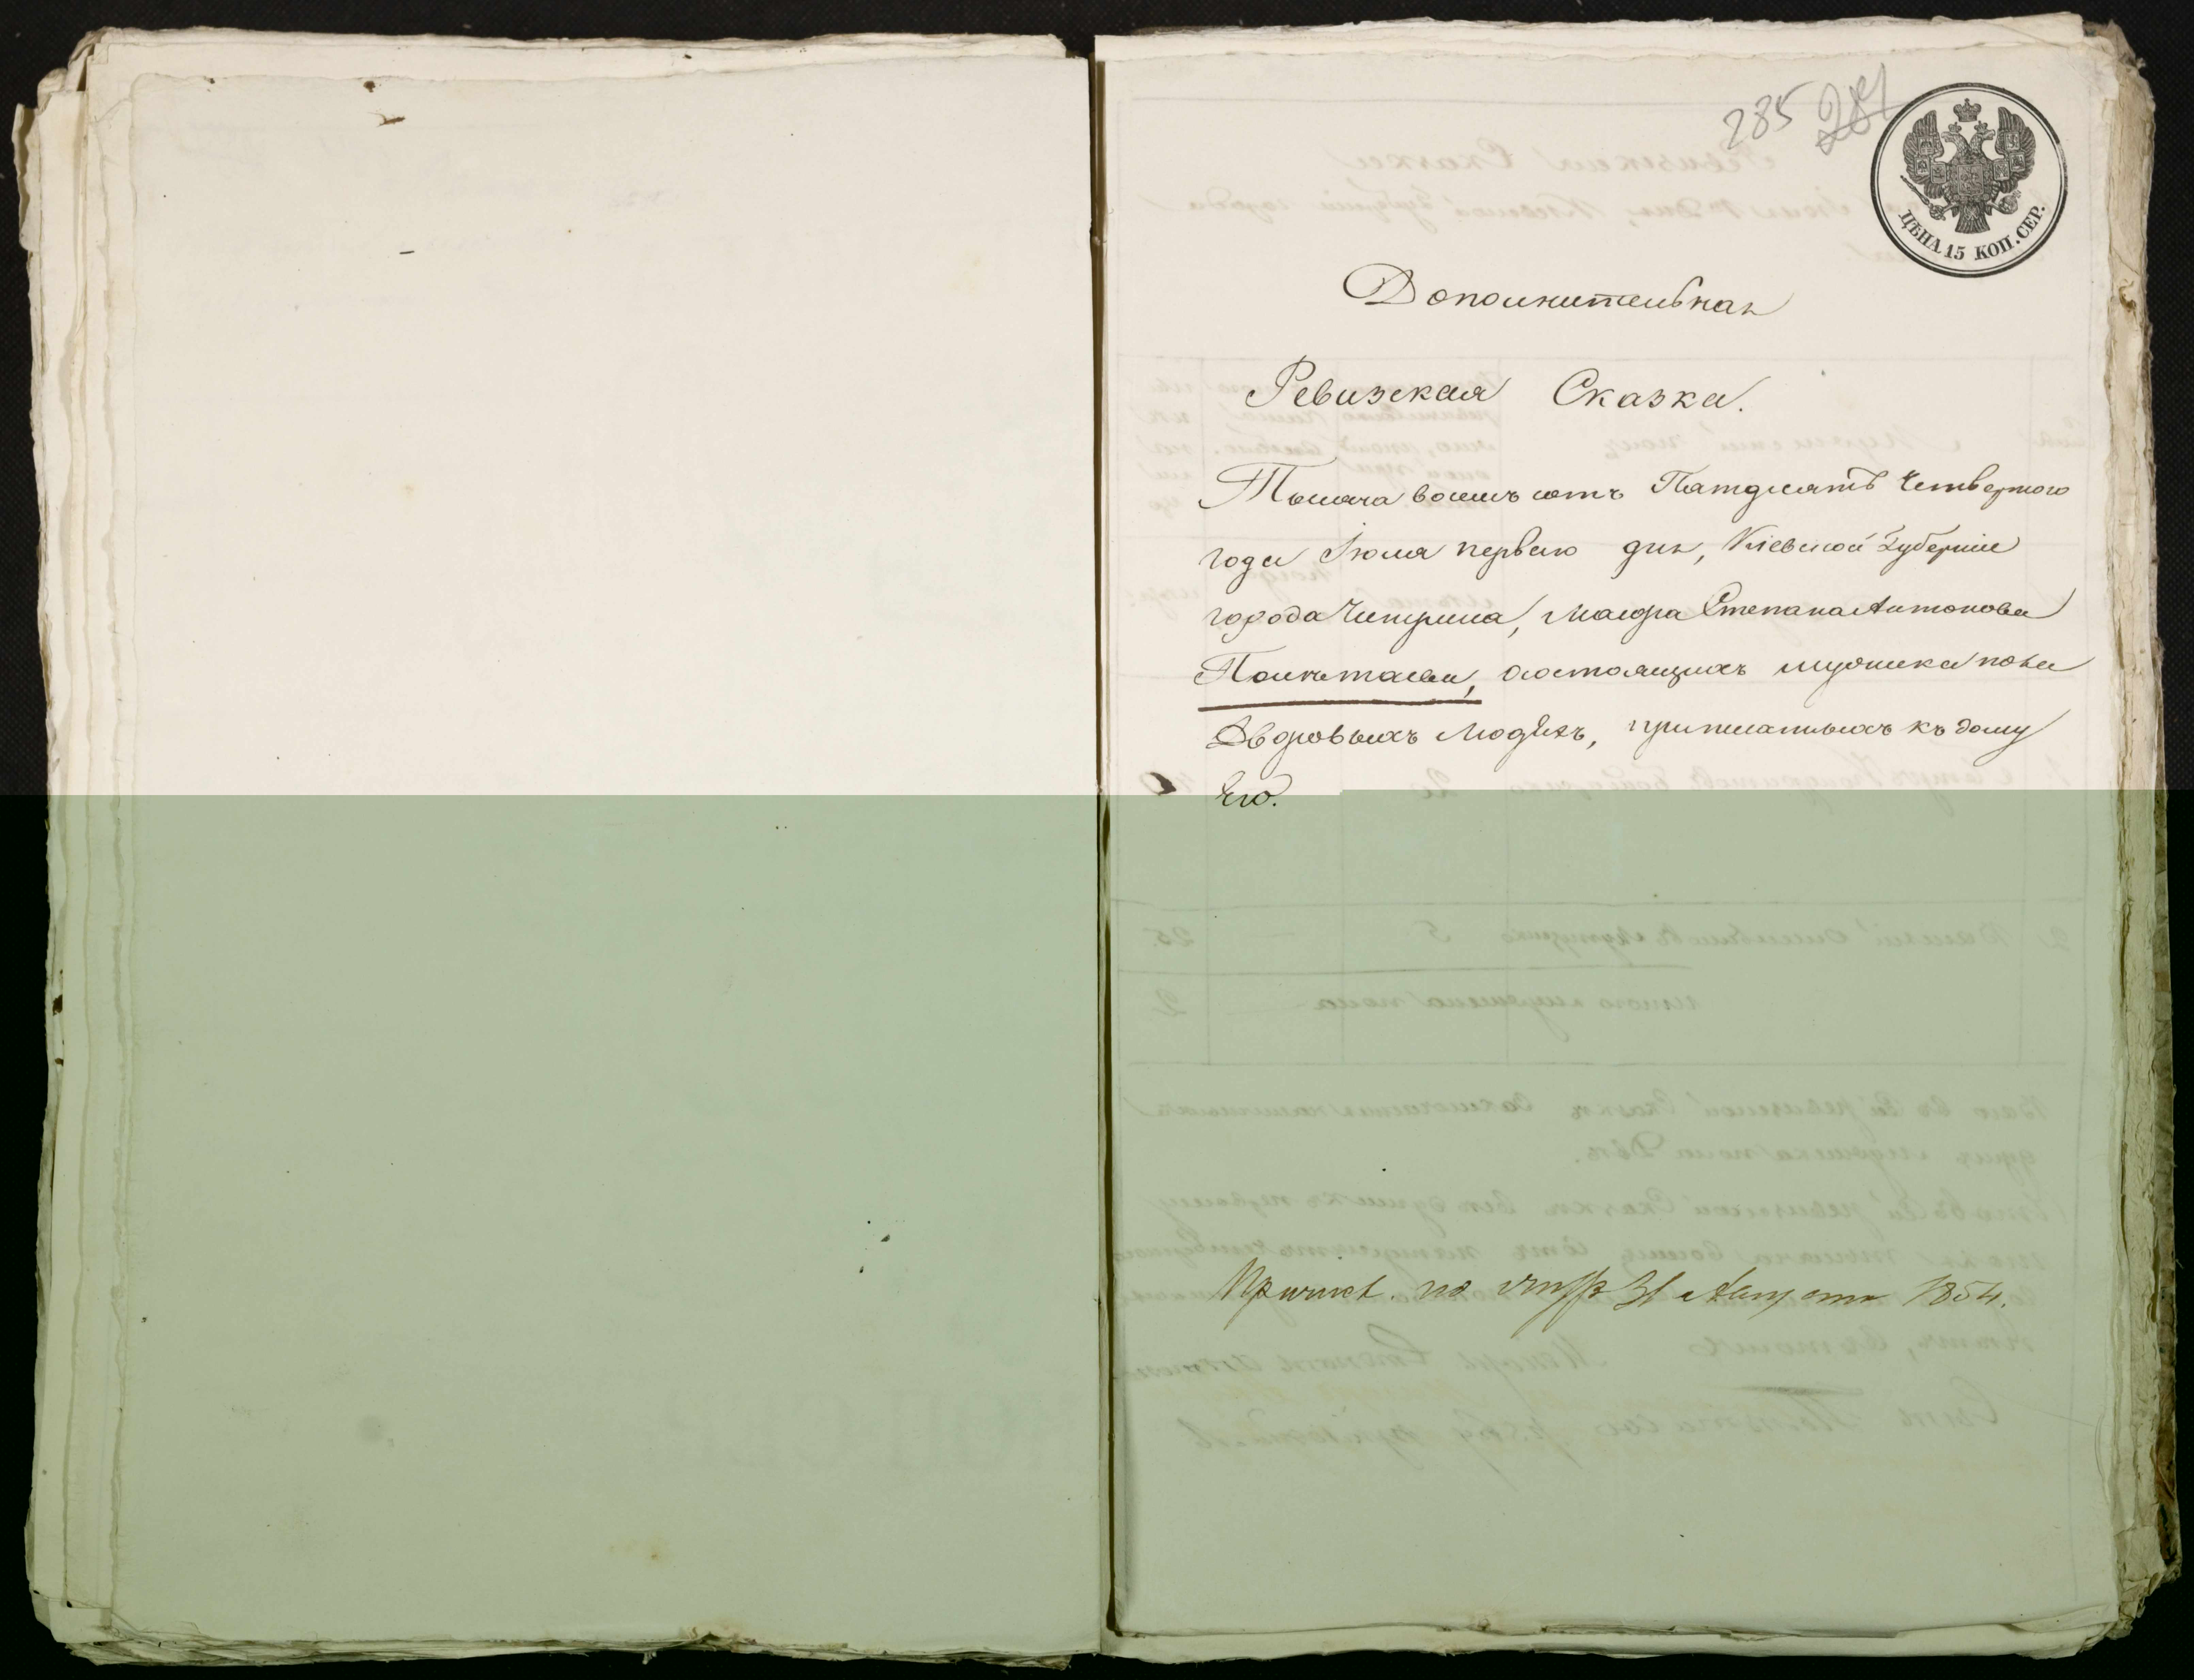 285 281
ЦѢНА 15 КОП. СЕР.
Дополнительная
Ревизская Сказка.
Тысяча восемь сотъ Пятдесятъ Четвертого
года Іюля перваго дня, Кіевской Губерніи
города Чигрина, Маіора Степана Антонова
состоящихъ мужеска пола
Дворовыхъ Людѣхъ, приписанныхъ къ дому
Его.
31 Августа 1854.